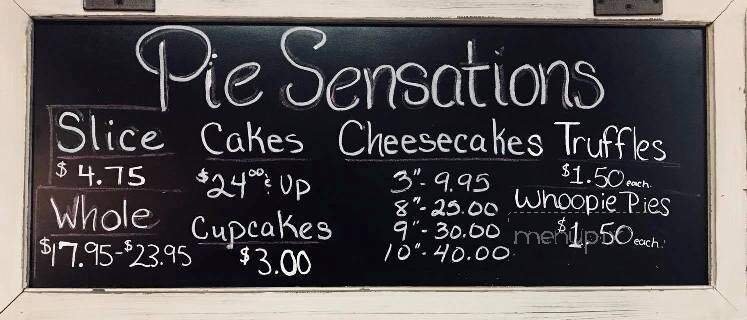 Pie Sensations
Slice
$4.75
Whole
$17.95-$23.95
Cakes
$24⁰⁰ & UP
Cupcakes
$3.00
Cheesecakes
3"- 9.95
8"- 25.00
9"- 30.00
10"- 40.00
Truffles
$1.50 each.
Whoopie Pies
$1.50 each.
menupix